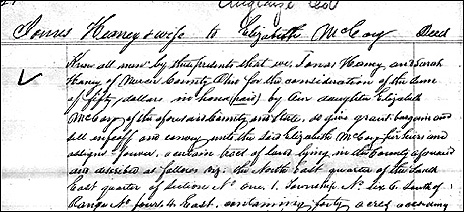 Auglaize Co
Jonas Haney & wife to Elizabeth McCoy Deed
Know all men by these presents that we, Jonas Haney, and Sarah
Haney of Mercer County Ohio for the consideration of the sum
of fifty dollars in hand (paid) by Our daughter Elizabeth
McCoy of the aforesaid County and State, do give grant bargain and
sell enfeoff and convey unto the said Elizabeth McCoy her heirs and
assigns forever, a certain tract of land lying in the County aforesaid
and described as follows viz: the North East quarter of the South
East quarter of Section No one, 1, Township No six 6, South of
Range No four, 4 East, containing forty acres according